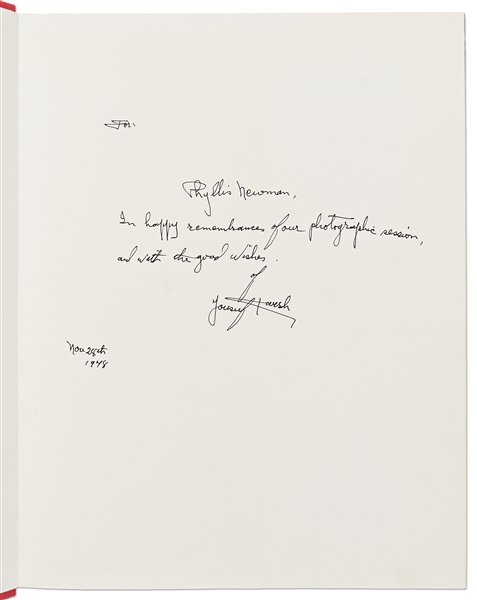 For:
Phyllis Newman,
In happy remembrances of our photographic session,
and with the good wishes.
of
Yousuf Karsh
Nov. 28th
1978